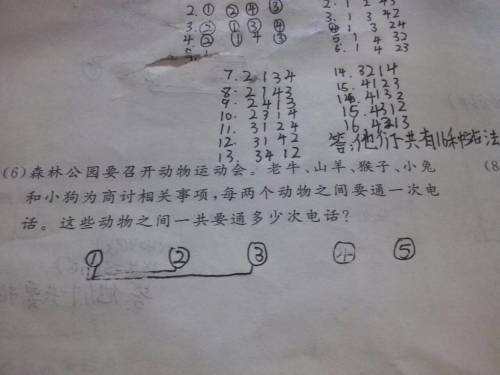 2. ① ② ④ ③
3. ② ① ③ ④
4. ② ① 4 ③
2. 1 2 43
3. 1 3 42
1 3 24
5 1 4 32
6. 1 4 23
7. 2 1 3 4
8. 2 1 4 3
9. 2 4 1 3
10. 2 3 1 4
11. 3 1 2 4
12. 3 1 4 2
13. 3 4 1 2
14. 3 2 1 4
15. 4 1 2 3
4 1 3 2
15. 4 3 1 2
16. 4 2 1 3
答:他们共有16种
(6) 森林公园要召开动物运动会。老牛、山羊、猴子、小兔
和小狗为商讨相关事项,每两个动物之间要通一次电
话。这些动物之间一共要通多少次电话?
(8
① ② ③ ④ ⑤